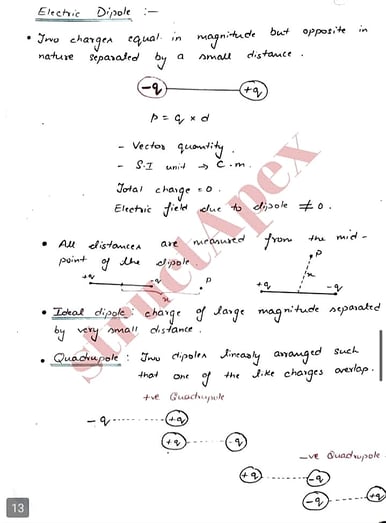 Electric Dipole :—
• Two charges equal in magnitude but opposite in
nature separated by a small distance.
-q +q
P = q × d
- Vector quantity.
- S.I unit → C.m.
Total charge = 0.
Electric field due to dipole ≠ 0.
• All distances are measured from the mid-
point of the dipole.
P
+q -q P
x
x
+q -q
• Ideal dipole : charge of large magnitude separated
by very small distance.
• Quadrupole : Two dipoles linearly arranged such
that one of the like charges overlap.
+ve Quadrupole
-q +q
+q -q
-ve Quadrupole
+q -q
-q +q
StructApex
13